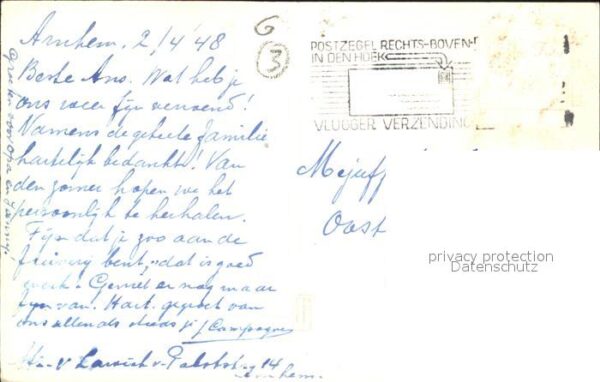 Arnhem. 2/4 '48
Beste Ans. Wat heb je
ons weer fijn verrast!
Namens de geheele familie
hartelijk bedankt! Van
den zomer hopen we het
persoonlijk te herhalen.
Fijn dat je zoo aan de
bent, dat is goed
werk. Geniet er nog maar
fijn van. Hart. gegroet van
ons allen als steeds je J. Campagne
14
Arnhem.
Groeten voor Opa en
G
3
POSTZEGEL RECHTS-BOVEN
IN DEN HOEK
VLUGGER VERZENDING
Mejuff
Oost
privacy protection
Datenschutz